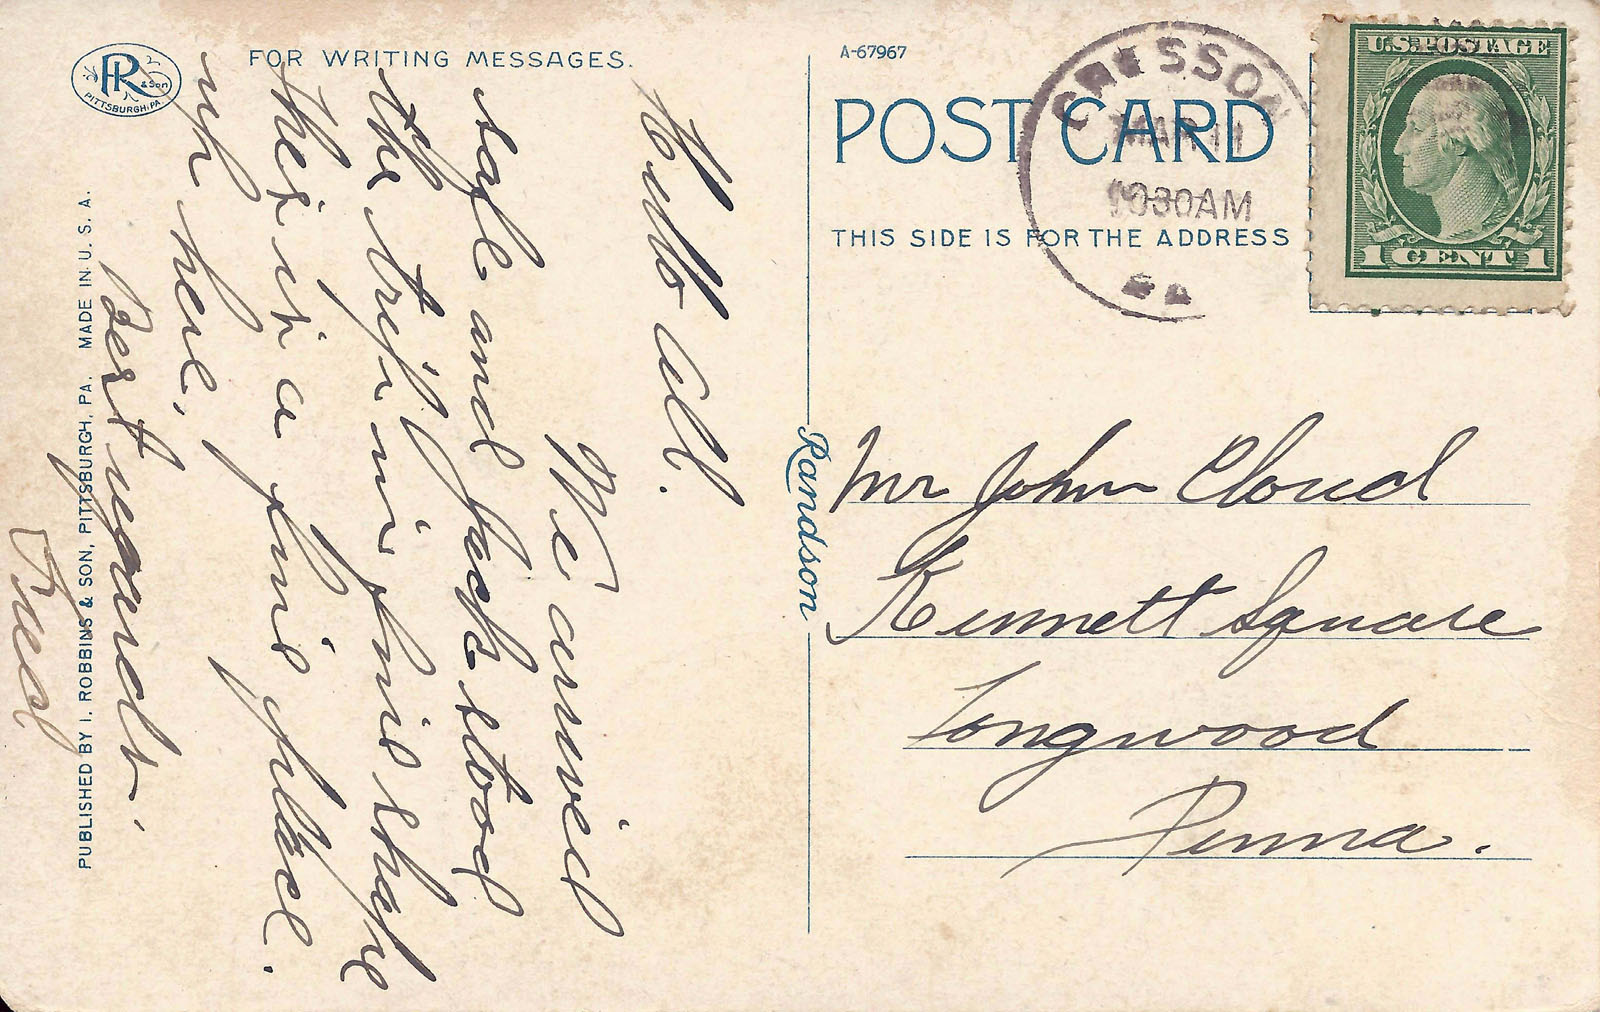 R & Son
PITTSBURGH, PA.
FOR WRITING MESSAGES.
Hello all.
We arrived
safe and Jack stood
the trip in fine shape
this is a fine place.
up here,
Best regards.
Fred
PUBLISHED BY I. ROBBINS & SON, PITTSBURGH, PA. MADE IN U. S. A.
Randson
A-67967
POST CARD
THIS SIDE IS FOR THE ADDRESS
CRESSON
MAR
1030AM
PA
U.S. POSTAGE
1 CENT 1
Mr John Cloud
Kennett Square
Longwood
Penna.